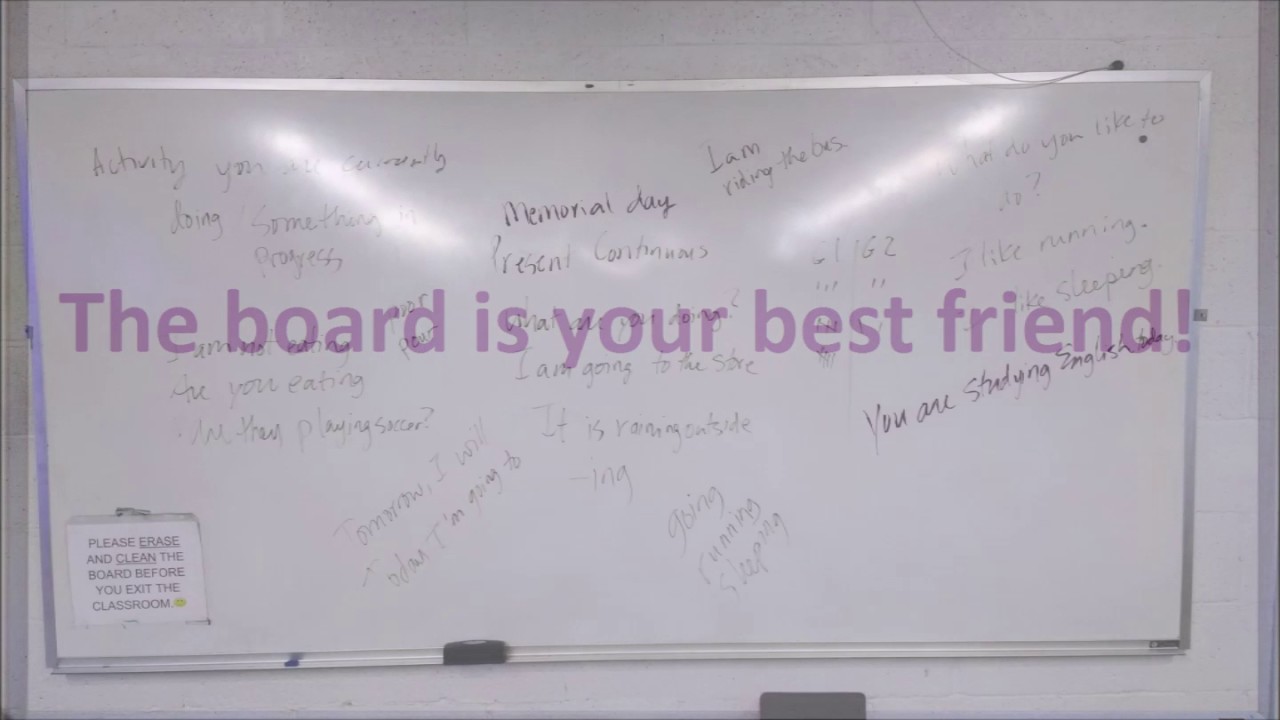 The board is your best friend!
Activity you are currently
doing / Something in
progress
I am not eating
Are you eating
Are they playing soccer?
poor
pour
Memorial day
Present Continuous
What are you doing?
I am going to the store
It is raining outside
-ing
Tomorrow, I will
today I'm going to
going
running
sleeping
I am
riding the bus.
G1 G2
What do you like to
do?
I like running.
I like sleeping.
You are studying English today.
PLEASE ERASE
AND CLEAN THE
BOARD BEFORE
YOU EXIT THE
CLASSROOM.